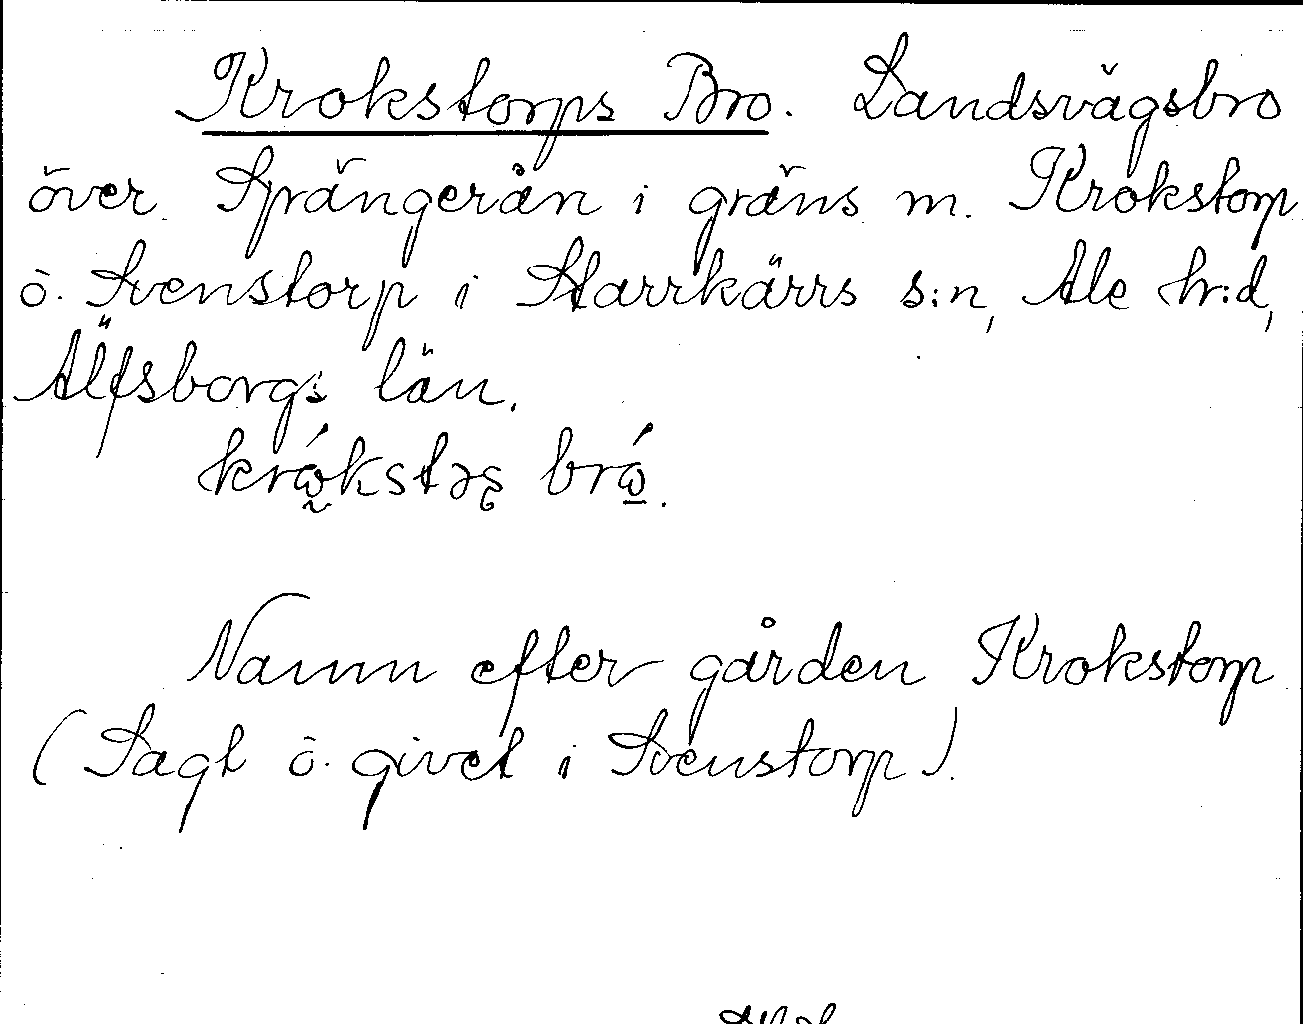 Krokstorps Bro. Landsvägsbro
över Sprängerån i gräns m. Krokstorp
o. Svenstorp i Starrkärrs s:n, Ale hr:d,
Älfsborgs län.
Namn efter gården Krokstorp
(Sagt o. givet i Svenstorp).